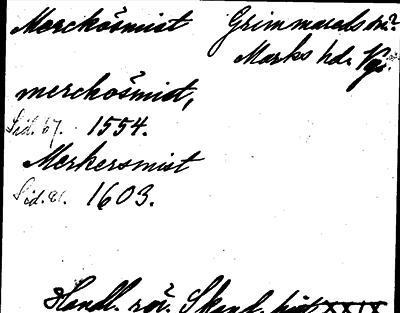 Merckösmist Grimmareds sn?
Marks hd. Vg.
merckosmist,
Sid. 67. 1554.
Merkersmist
Sid. 81. 1603.
Handl. rör. Skand. hist XXIX